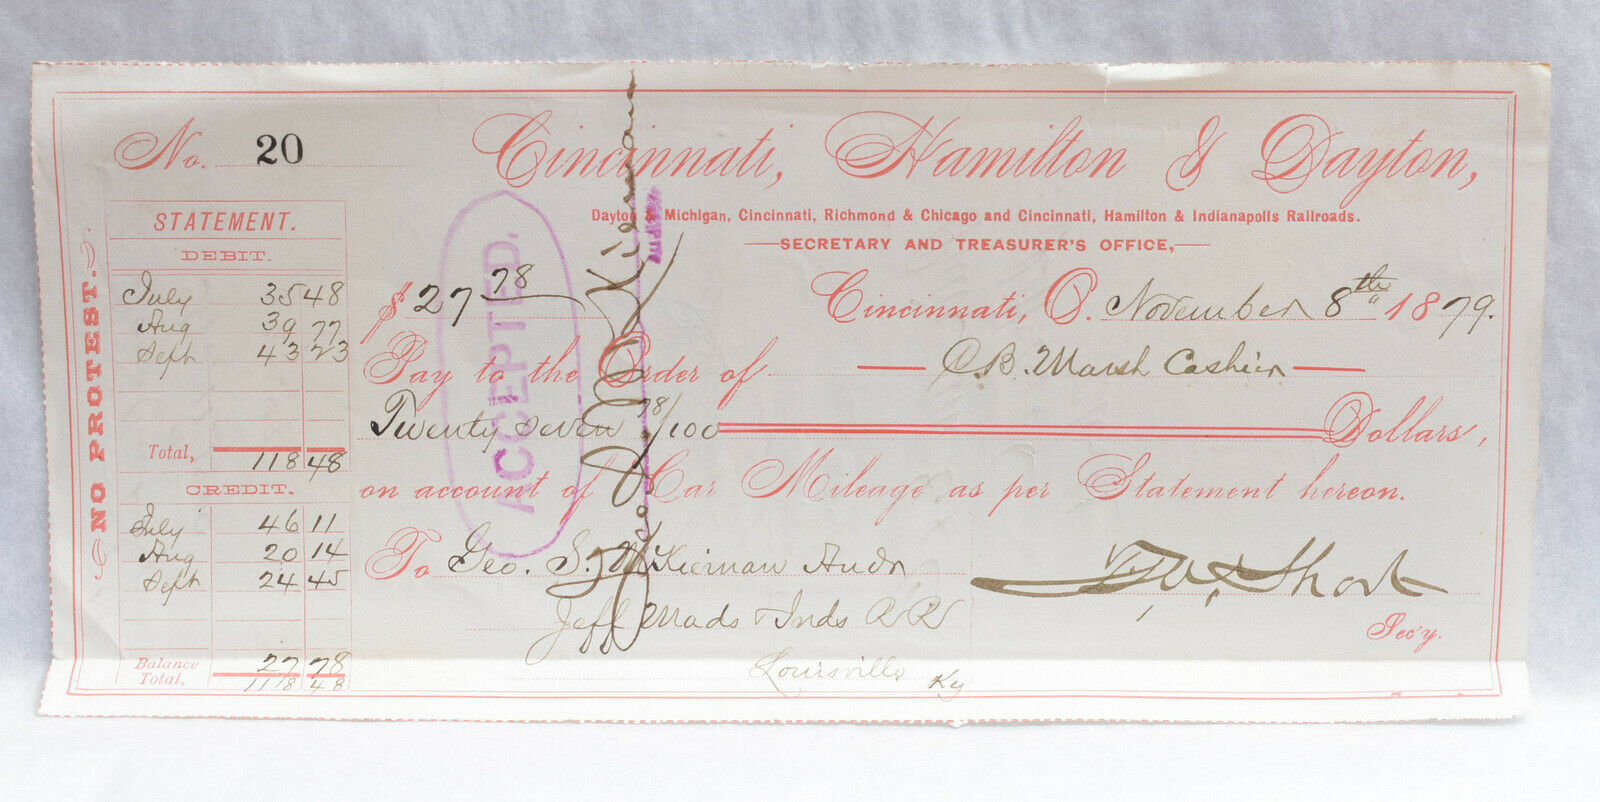 No. 20
Cincinnati, Hamilton & Dayton,
Dayton & Michigan, Cincinnati, Richmond & Chicago and Cincinnati, Hamilton & Indianapolis Railroads.
SECRETARY AND TREASURER'S OFFICE,
NO PROTEST.
STATEMENT.
DEBIT.
July 35 48
Aug 39 77
Sept 43 23
Total, 118 48
CREDIT.
July 46 11
Aug 20 14
Sept 24 45
Balance 27 78
Total, 118 48
$ 27 78
Cincinnati, O. November 8th 1879.
Pay to the Order of C.B. Marsh Cashier
Twenty seven 78/100 Dollars,
on account of Car Mileage as per Statement hereon.
To Geo. S. McKiernan Audr
Jeff Mads & Inds RR
Louisville Ky
Short
Sec'y.
ACCEPTED.
Geo McKiernan